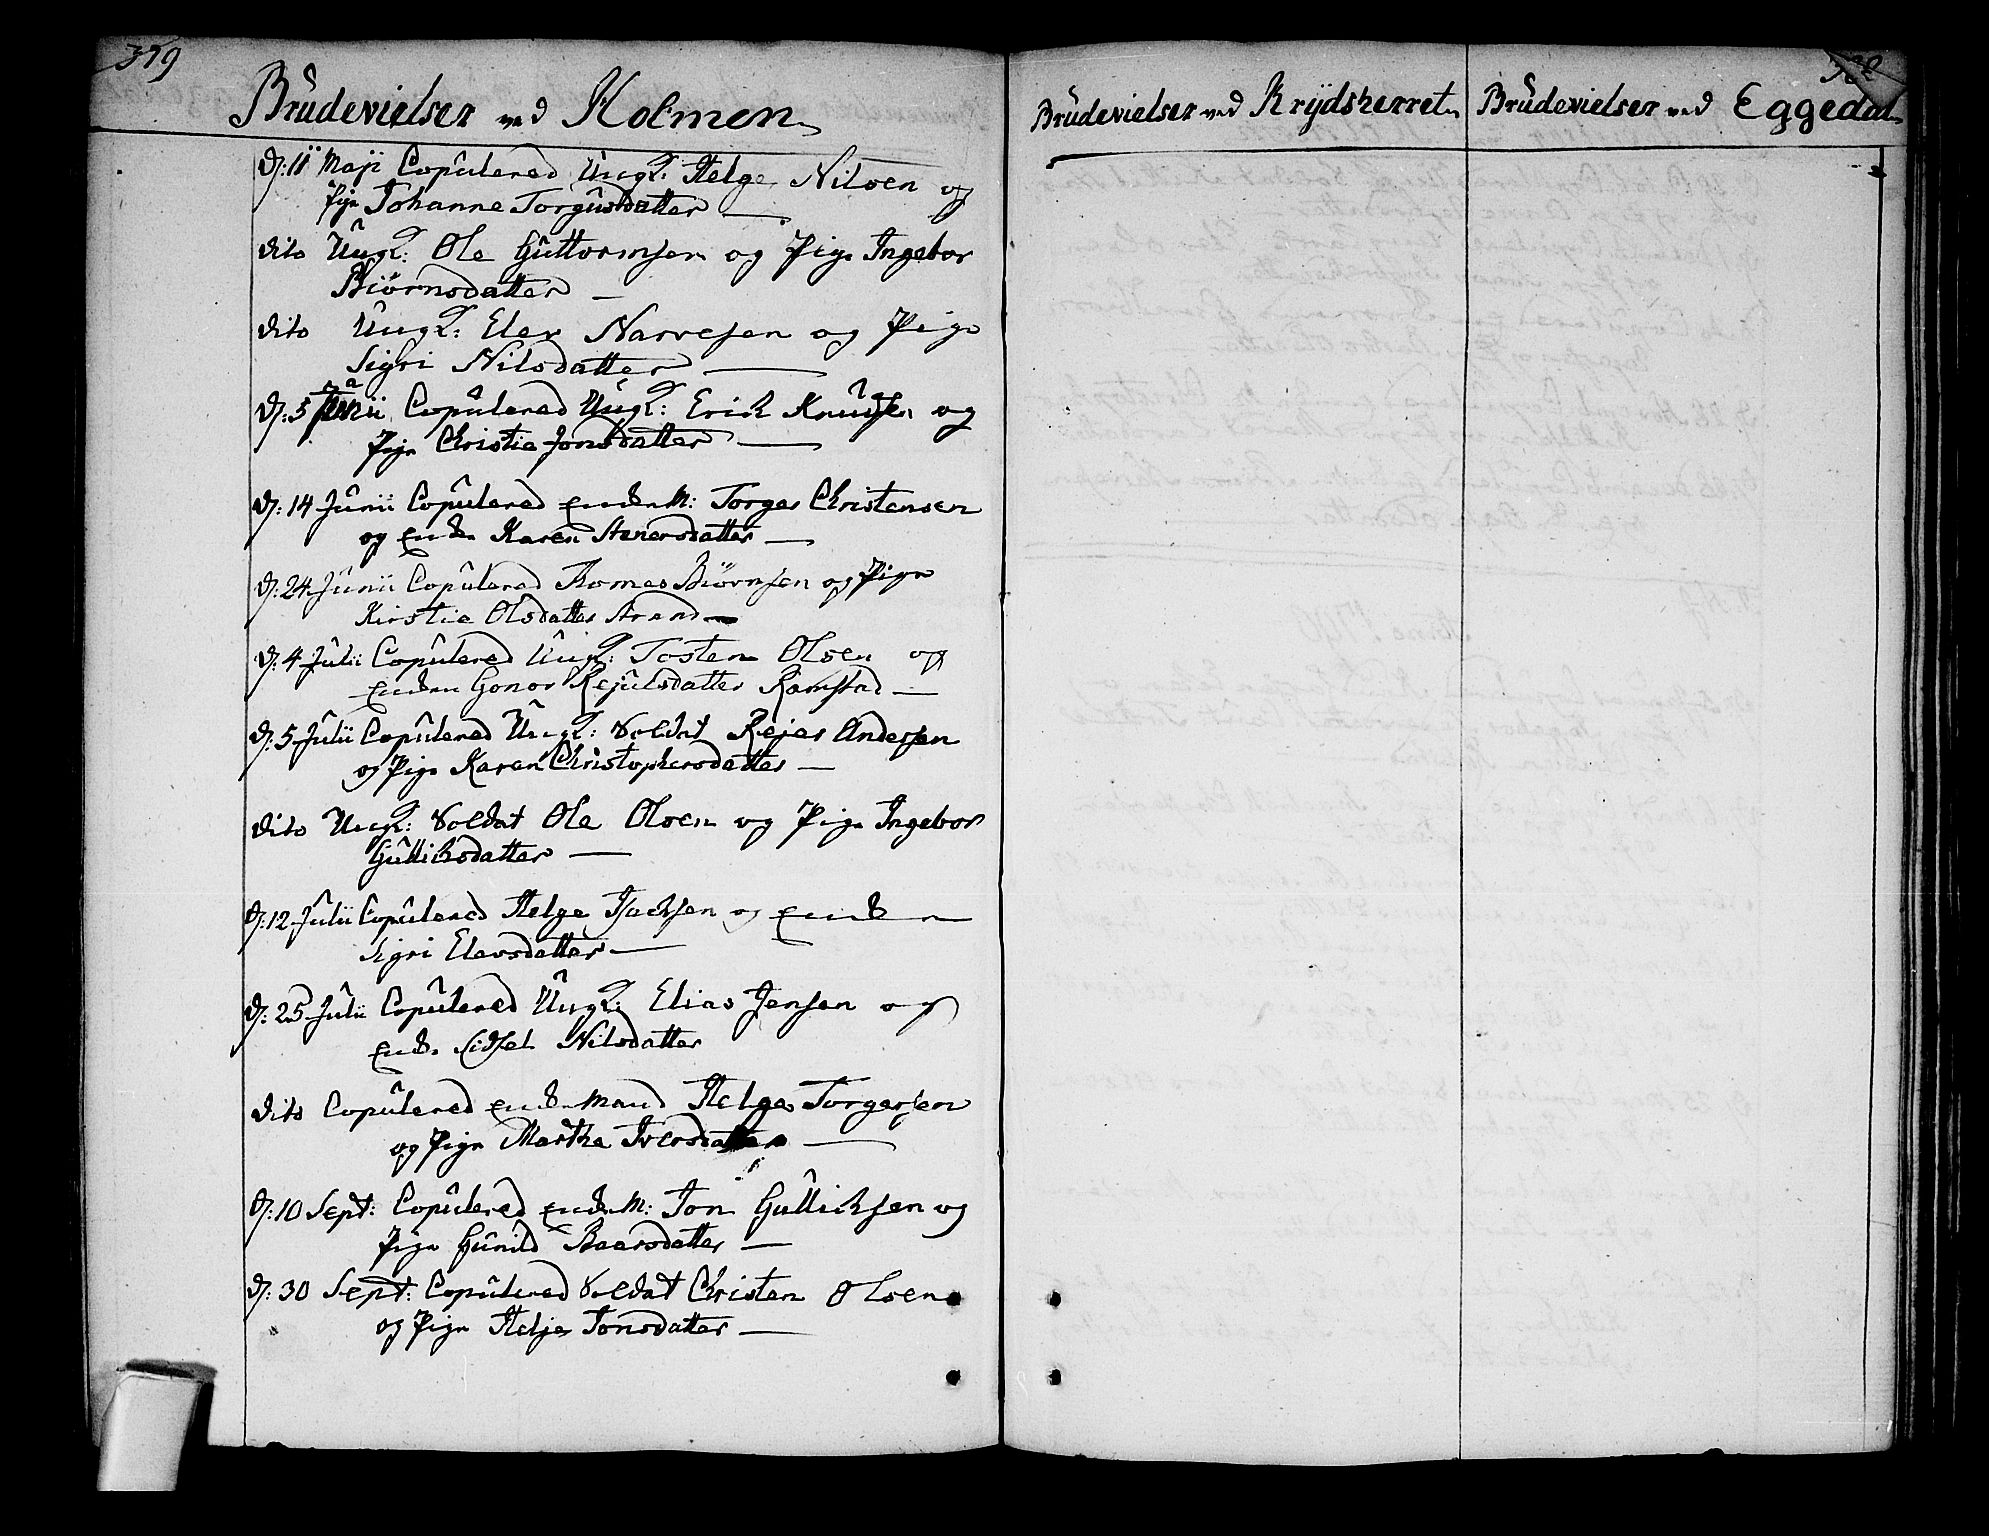 379
Brudevielser ved Holmen
D: 11 Maji Copulered Ungk: Helge Nilsen og
Pige Johanne Torgusdatter —
dito Ungk: Ole Guttormsen og Pige Ingebor
Biörnsdatter —
dito Ungk: Elev Narvesen og Pige
Sigri Nilsdatter —
D: 5 Junii Copulered Ungk: Erich Knudsen og
Pige Christie Jonsdatter —
D: 14 Junii Copulered Enke M: Torger Christensen
og Enke Karen Stenersdatter —
D: 24 Junii Copulered Thomes Biörnsen og Pige
Kirstie Olsdatter Strand —
D: 4 Julii Copulered Ungk: Tosten Olsen og
Enken Gonor Rejulsdatter Ramstad —
D: 5 Julii Copulered Ungk: Soldat Rejer Andersen
og Pige Karen Christophersdatter —
dito Ungk: Soldat Ole Olsen og Pige Ingebor
Gullichsdatter —
D: 12 Julii Copulered Helge Isachsen og Enken
Sigri Elevsdatter —
D: 25 Julii Copulered Ungk: Elias Jensen og
Enke Sidsel Nilsdatter
dito Copulered Enke Mand Helge Torgersen
og Pige Marthe Iversdatter —
D: 10 Sept: Copulered Enke M: Jon Gullichsen og
Pige Gunild Baarsdatter —
D: 30 Sept: Copulered Soldat Christen Olsen
og Pige Helje Jonsdatter —
Brudevielser ved Krydsherret
Brudevielser ved Eggedal